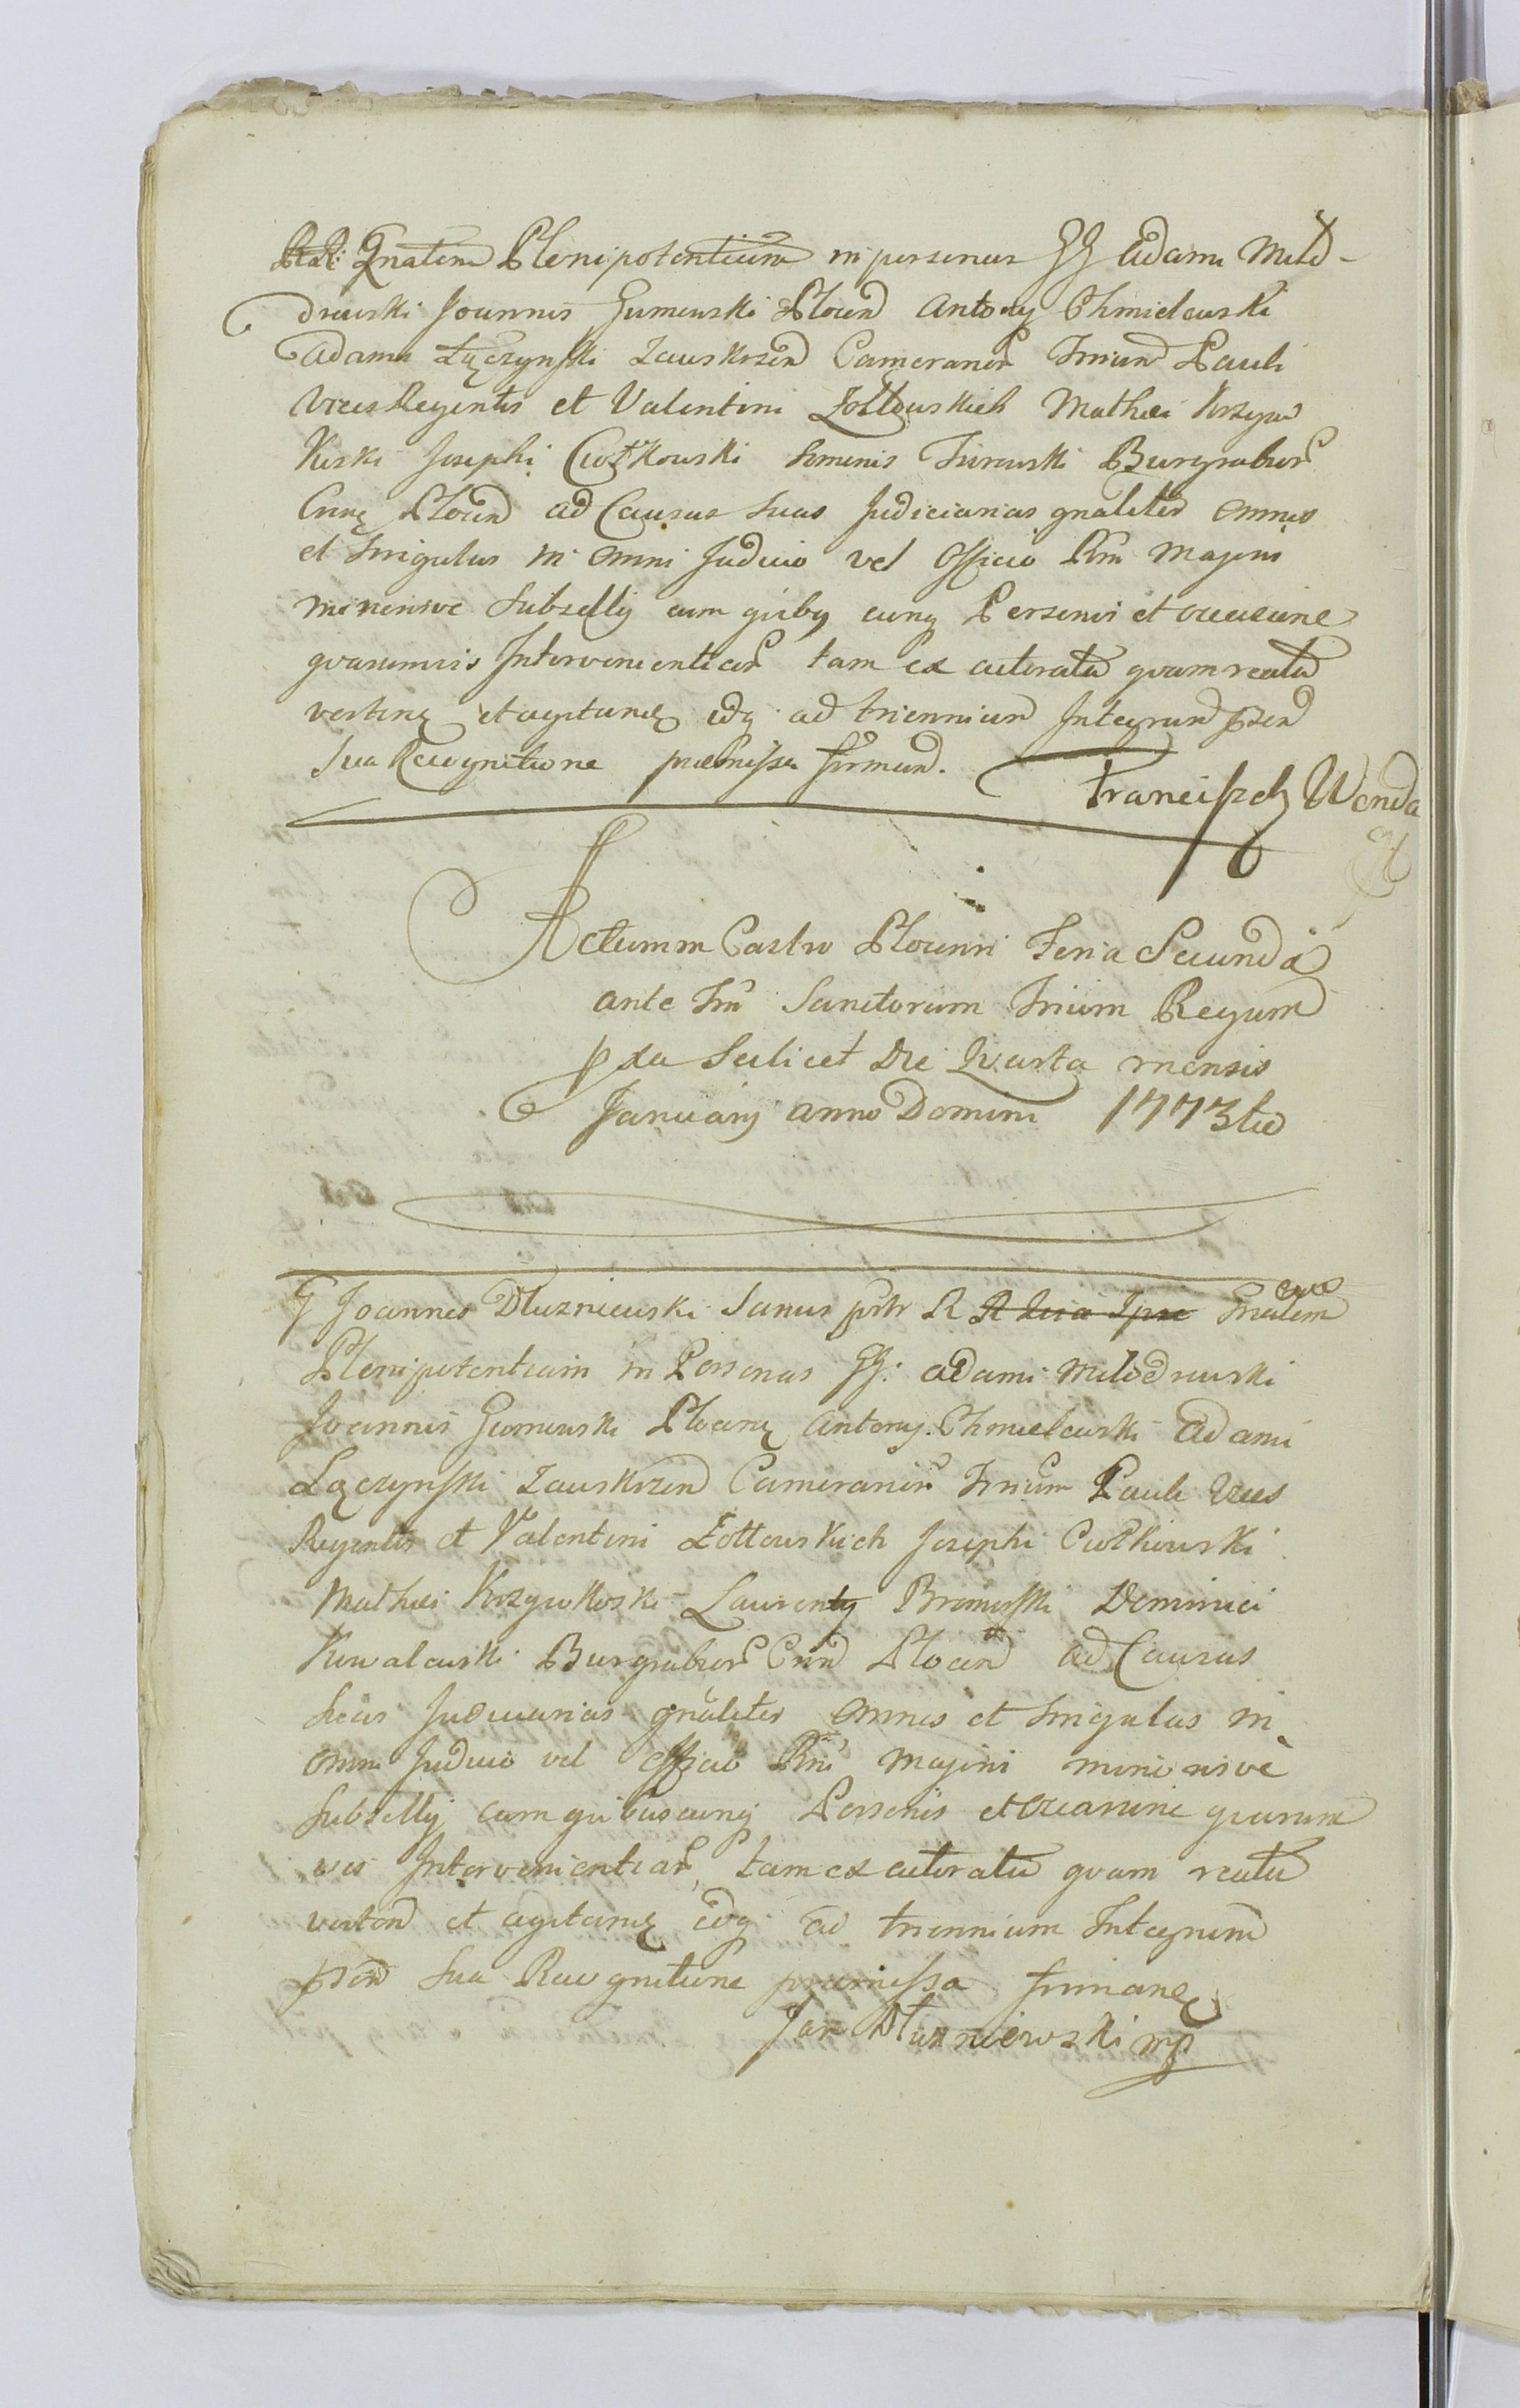 Gnalem Plenipotentiam in personas GG Adami Mlod-
drewski Joannis Gumowski Plocen Antony Chmielewski
Adami Łączynski Zawskrzen Cameranior Trium Pauli
Vices Regentis et Valentini Zołtowskich Mathei Krzyw
koski Josephi Ciołkowski Burgrabior
Cnng Plocen ad Causas suas Judiciarias gnaliter omnes
et singulas in omni Judicio vel Officio Rni majoris
minorisve Subselly cum quibg cunq Personis et occasione
quavumvis Intervenientiar tam ex actoratu quam reatu
verten et agitan idq ad triennium Integrum pten
sua Recognitione praemissa firmand.
Franciszek Wenda
Actum in Castro Plocen Feria Secunda
ante Ftm Sanctorum Trium Regum
pxa Scilicet Die Quarta mensis
January anno Domini 1773tio
G Joannes Dluzniewski Sanus R Gnalem
Plenipotentiam in Personas GG. Adami Mlodrewski
Joannis Gumowski Plocen Antony Chmielewski Adami
Łączynski Zawskrzen Cameranior Trium Pauli Vices
Regentis et Valentini Zołtowskich Josephi Ciołkowski
Mathei Krzywkoski Laurenty Dominici
Kowalewski Burgrabior Cnn Plocen ad Causas
suas Judiciarias gnaliter omnes et singulas in
omni Judicio vel officio Rni majoris minorisve
Subselly cum quibuscunq Personis et occasione quavum
vis Intervenientiar, tam ex actoratu quam reatu
verten et agitan idq ad triennium Integrum
pten sua Recognitione praemissa firman
Jan Dłuzniewski mp